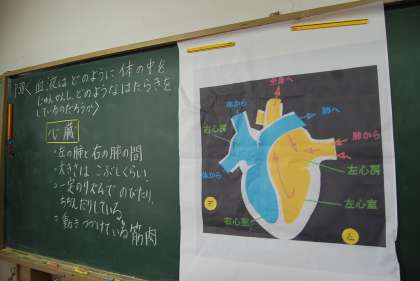 血液はどのように体の中を
じゅんかんし、どのようなはたらきを
しているのだろうか？
心臓
・左の肺と右の肺の間
・大きさは こぶしくらい
・一定のリズムで のびたり、
ちぢんだりしている。
= 動きつづけている筋肉
全身へ
体から
肺へ
右心房
肺から
左心房
体から
左心室
右心室
右
左